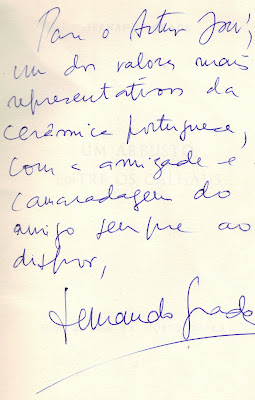 Para o Artur José,
um dos valores mais
representativos da
cerâmica portuguesa,
com a amizade e
camaradagem do
amigo sempre ao
dispor,
Fernando Grade